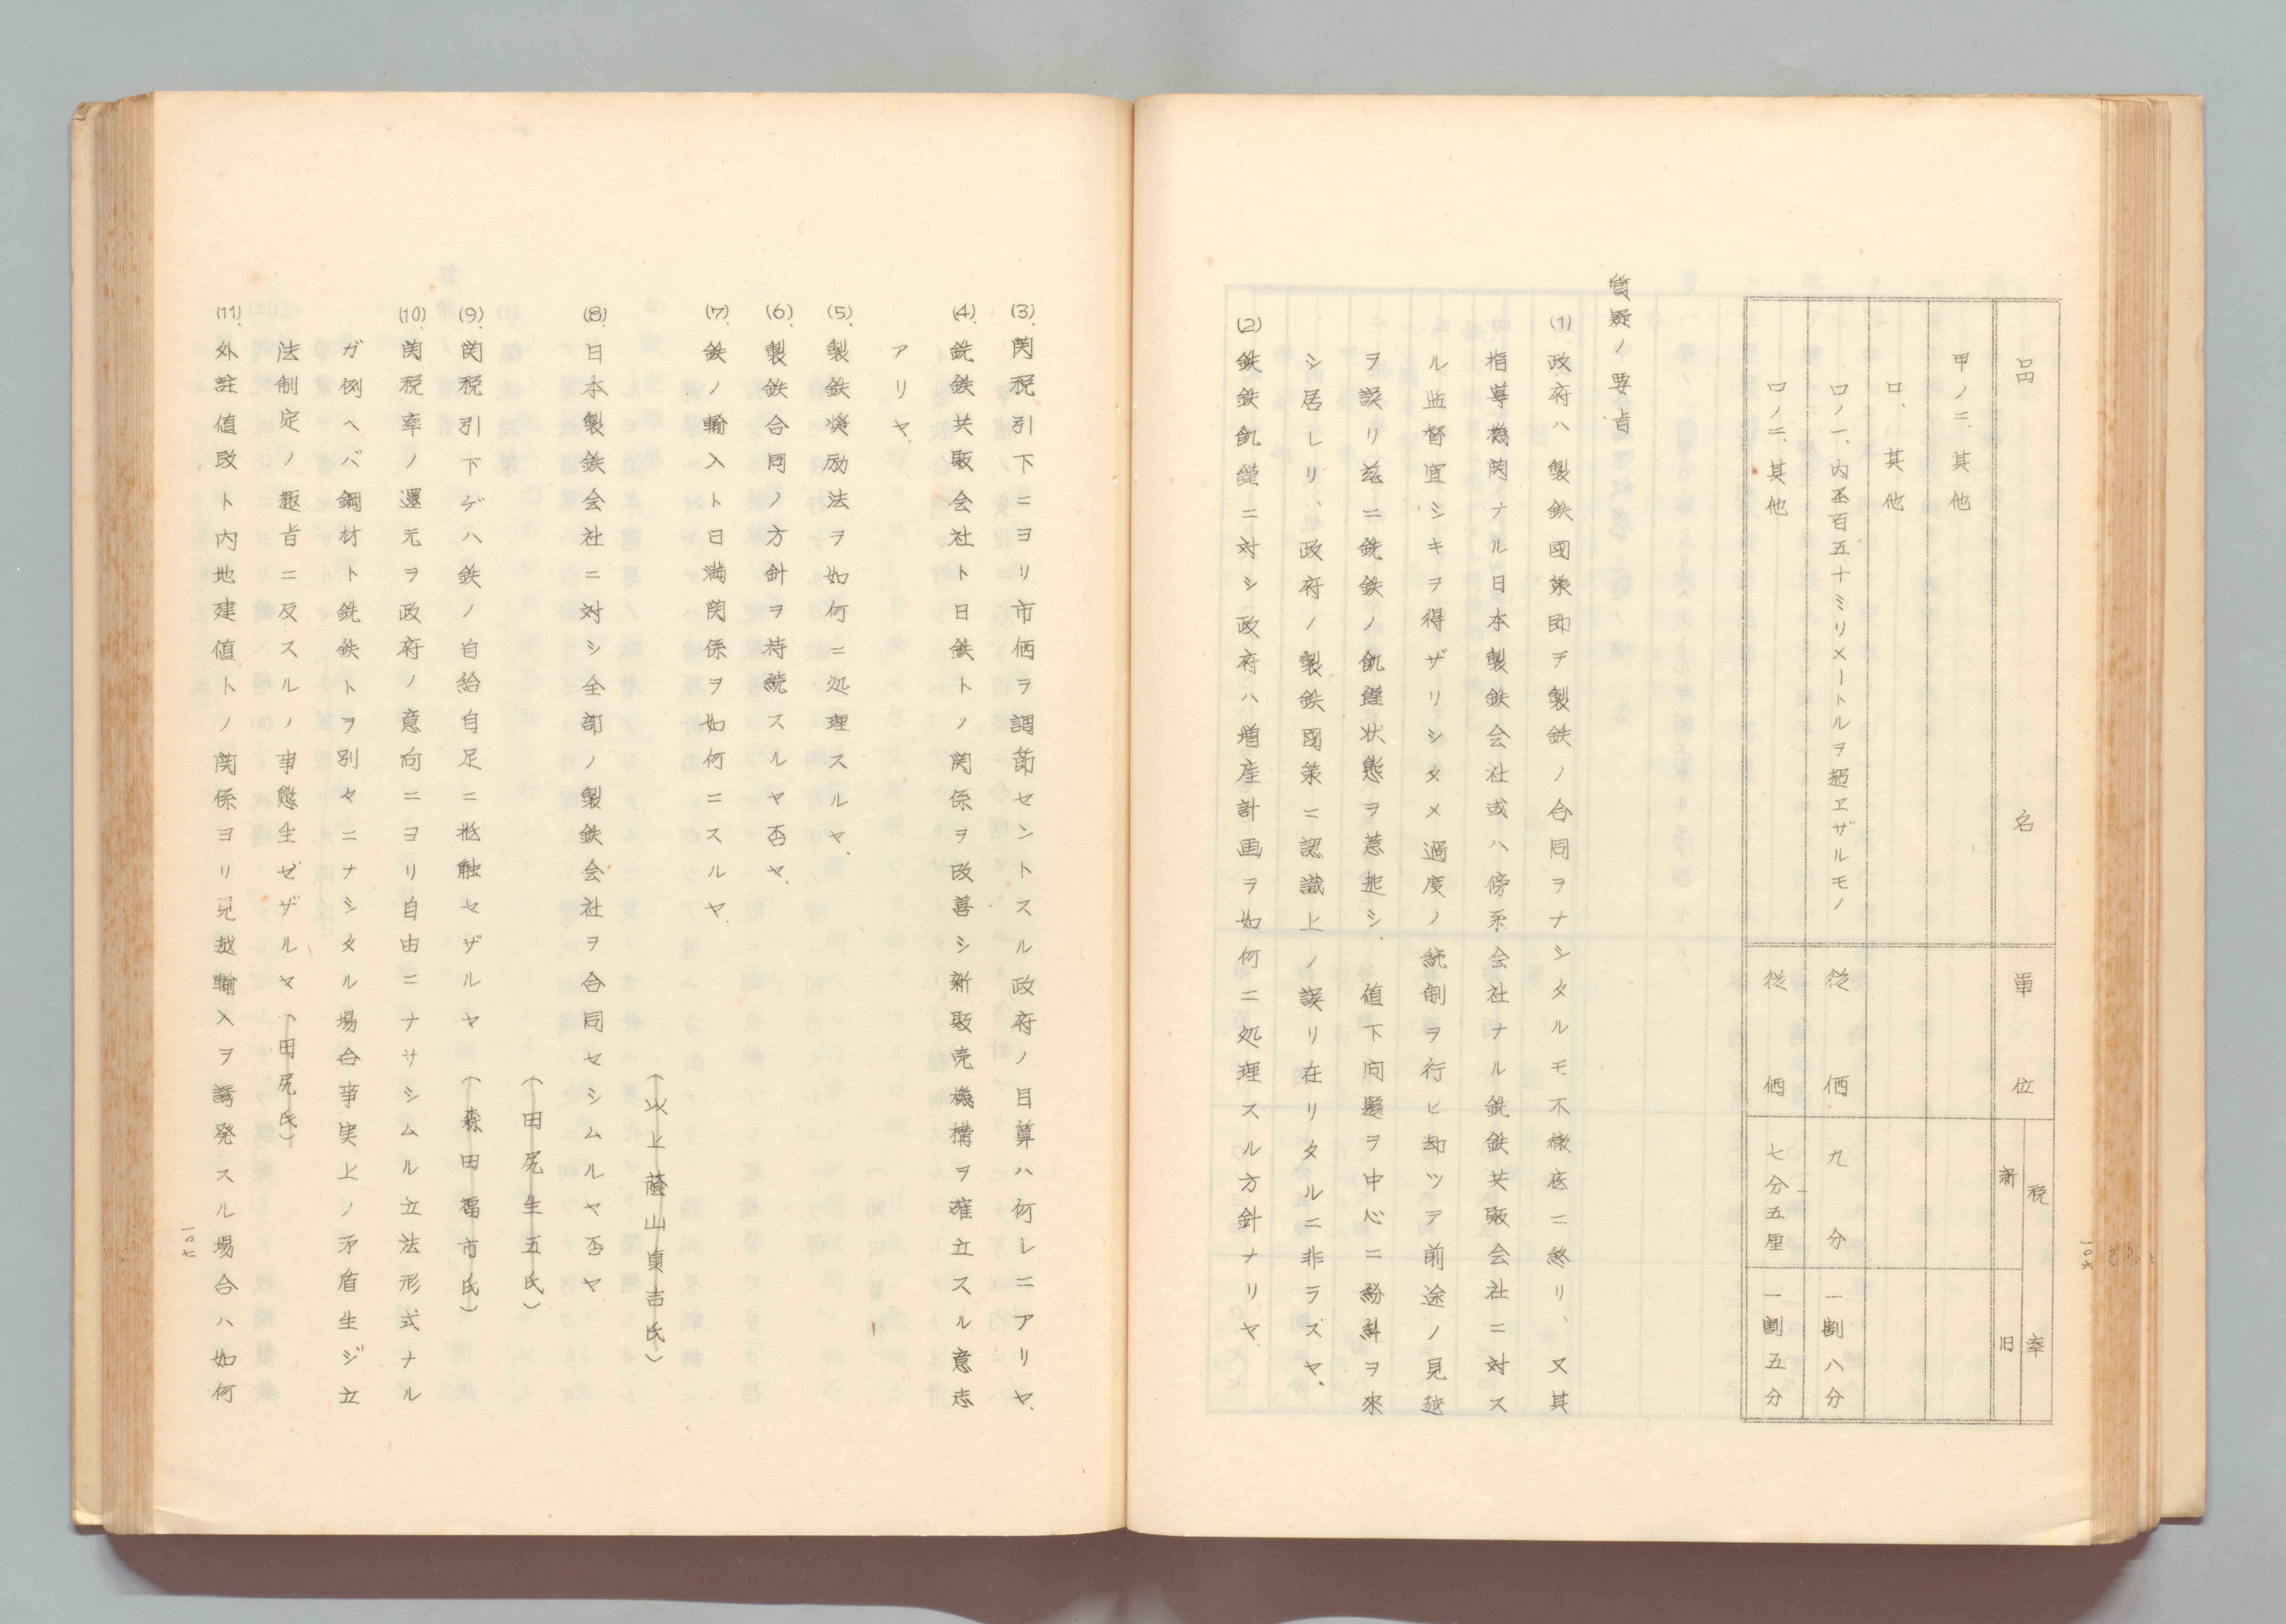 品名 単位 税率 新 旧
甲ノ二、其他
ロ、其他
ロノ一、内径百五十ミリメートルヲ超エザルモノ 従価 九分 一割八分
ロノ二、其他 従価 七分五厘 一割五分
質疑ノ要旨
(1) 政府ハ製鉄國策即チ製鉄ノ合同ヲナシタルモ不徹底ニ終リ、又其
指導機関ナル日本製鉄会社或ハ傍系会社ナル銑鉄共販会社ニ対ス
ル監督宜シキヲ得ザリシタメ過度ノ統制ヲ行ヒ却ツテ前途ノ見越
ヲ誤リ茲ニ銑鉄ノ飢饉状態ヲ惹起シ、値下問題ヲ中心ニ紛糾ヲ来
シ居レリ、政府ノ製鉄國策ニ認識上ノ誤リ在リタルニ非ラズヤ、
(2) 鉄鉄飢饉ニ対シ政府ハ増産計画ヲ如何ニ処理スル方針ナリヤ、
一〇六
(3)、関税引下ニヨリ市価ヲ調節セントスル政府ノ目算ハ何レニアリヤ、
(4)、銑鉄共販会社ト日鉄トノ関係ヲ改善シ新販売機構ヲ確立スル意志
アリヤ、
(5)、製鉄奨励法ヲ如何ニ処理スルヤ、
(6)、製鉄合同ノ方針ヲ持続スルヤ否ヤ、
(7)、鉄ノ輸入ト日満関係ヲ如何ニスルヤ、
(以上蔭山貞吉氏)
(8)、日本製鉄会社ニ対シ全部ノ製鉄会社ヲ合同セシムルヤ否ヤ
(田尻生五氏)
(9)、関税引下ゲハ鉄ノ自給自足ニ抵触セザルヤ (森田福市氏)
(10)、関税率ノ還元ヲ政府ノ意向ニヨリ自由ニナサシムル立法形式ナル
ガ例ヘバ鋼材ト銑鉄トヲ別々ニナシタル場合事実上ノ矛盾生ジ立
法制定ノ趣旨ニ反スルノ事態生ゼザルヤ、(田尻氏)
(11)、外註値段ト内地建値トノ関係ヨリ見越輸入ヲ誘発スル場合ハ如何
一〇七